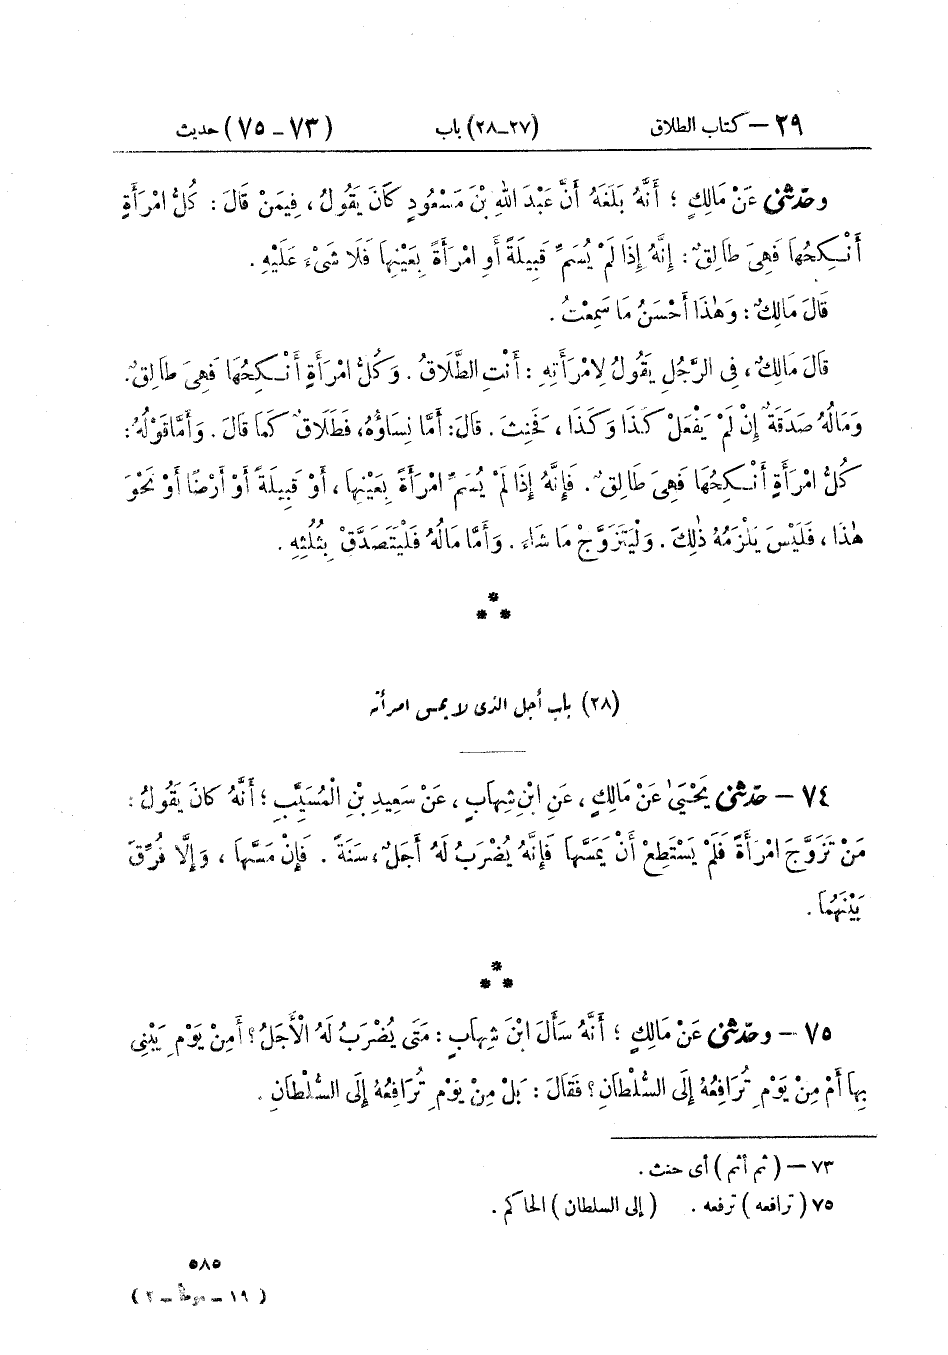 ٢٩ – كتاب الطلاق (٢٧-٢٨) باب (٧٣-٧٥) حديث
وحدّثنى عَنْ مَالِكٍ ؛ أَنَّهُ بَلَغَهُ أَنَّ عَبْدَ اللهِ بْنَ مَسْعُودٍ كَانَ يَقُولُ ، فِيمَنْ قَالَ : كُلُّ امْرَأَةٍ
أَنْكِحُهَا فَهِىَ طَالِقٌ : إِنَّهُ إِذَا لَمْ يُسَمِّ قَبِيلَةً أَوِ امْرَأَةً بِعَيْنِهَا فَلَا شَىْءَ عَلَيْهِ .
قَالَ مَالِكٌ : وَهٰذَا أَحْسَنُ مَا سَمِعْتُ .
قَالَ مَالِكٌ ، فِى الرَّجُلِ يَقُولُ لِامْرَأَتِهِ : أَنْتِ الطَّلَاقُ . وَكُلُّ امْرَأَةٍ أَنْكِحُهَا فَهِىَ طَالِقٌ .
وَمَالُهُ صَدَقَةٌ إِنْ لَمْ يَفْعَلْ كَذَا وَكَذَا ، فَحَنِثَ . قَالَ : أَمَّا نِسَاؤُهُ ، فَطَلَاقٌ كَمَا قَالَ . وَأَمَّا قَوْلُهُ :
كُلُّ امْرَأَةٍ أَنْكِحُهَا فَهِىَ طَالِقٌ . فَإِنَّهُ إِذَا لَمْ يُسَمِّ امْرَأَةً بِعَيْنِهَا ، أَوْ قَبِيلَةً أَوْ أَرْضًا أَوْ نَحْوَ
هٰذَا ، فَلَيْسَ يَلْزَمُهُ ذٰلِكَ . وَلْيَتَزَوَّجْ مَا شَاءَ . وَأَمَّا مَالُهُ فَلْيَتَصَدَّقْ بِثُلُثِهِ .
(٢٨) باب أجل الذى لا يمس امرأته
٧٤ – حدّثنى يَحْيَىٰ عَنْ مَالِكٍ ، عَنِ ابْنِ شِهَابٍ ، عَنْ سَعِيدِ بْنِ الْمُسَيَّبِ ؛ أَنَّهُ كَانَ يَقُولُ :
مَنْ تَزَوَّجَ امْرَأَةً فَلَمْ يَسْتَطِعْ أَنْ يَمَسَّهَا فَإِنَّهُ يُضْرَبُ لَهُ أَجَلٌ ، سَنَةً . فَإِنْ مَسَّهَا ، وَإِلَّا فُرِّقَ
بَيْنَهُمَا .
٧٥ – وحدّثنى عَنْ مَالِكٍ ؛ أَنَّهُ سَأَلَ ابْنَ شِهَابٍ : مَتَى يُضْرَبُ لَهُ الْأَجَلُ ؟ أَمِنْ يَوْمِ يَبْنِى
بِهَا أَمْ مِنْ يَوْمِ تُرَافِعُهُ إِلَى السُّلْطَانِ ؟ فَقَالَ : بَلْ مِنْ يَوْمِ تُرَافِعُهُ إِلَى السُّلْطَانِ .
٧٣ – (ثم أثم) أى حنث .
٧٥ (ترافعه) ترفعه . (إلى السلطان) الحاكم .
٥٨٥
(١٩ – موطأ – ٢)